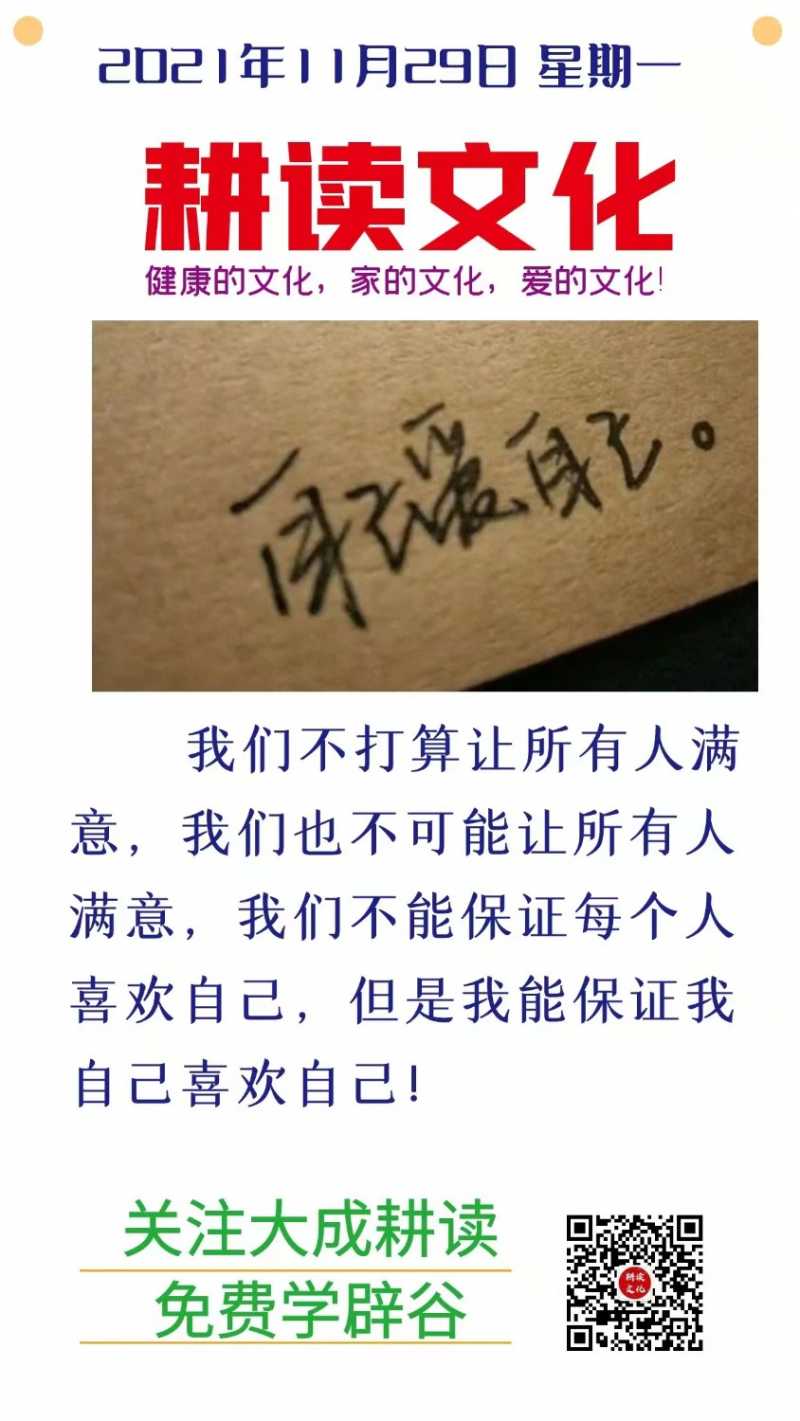 2021年11月29日 星期一
耕读文化
健康的文化，家的文化，爱的文化!
自己爱自己。
我们不打算让所有人满
意，我们也不可能让所有人
满意，我们不能保证每个人
喜欢自己，但是我能保证我
自己喜欢自己!
关注大成耕读
免费学辟谷
耕读
文化